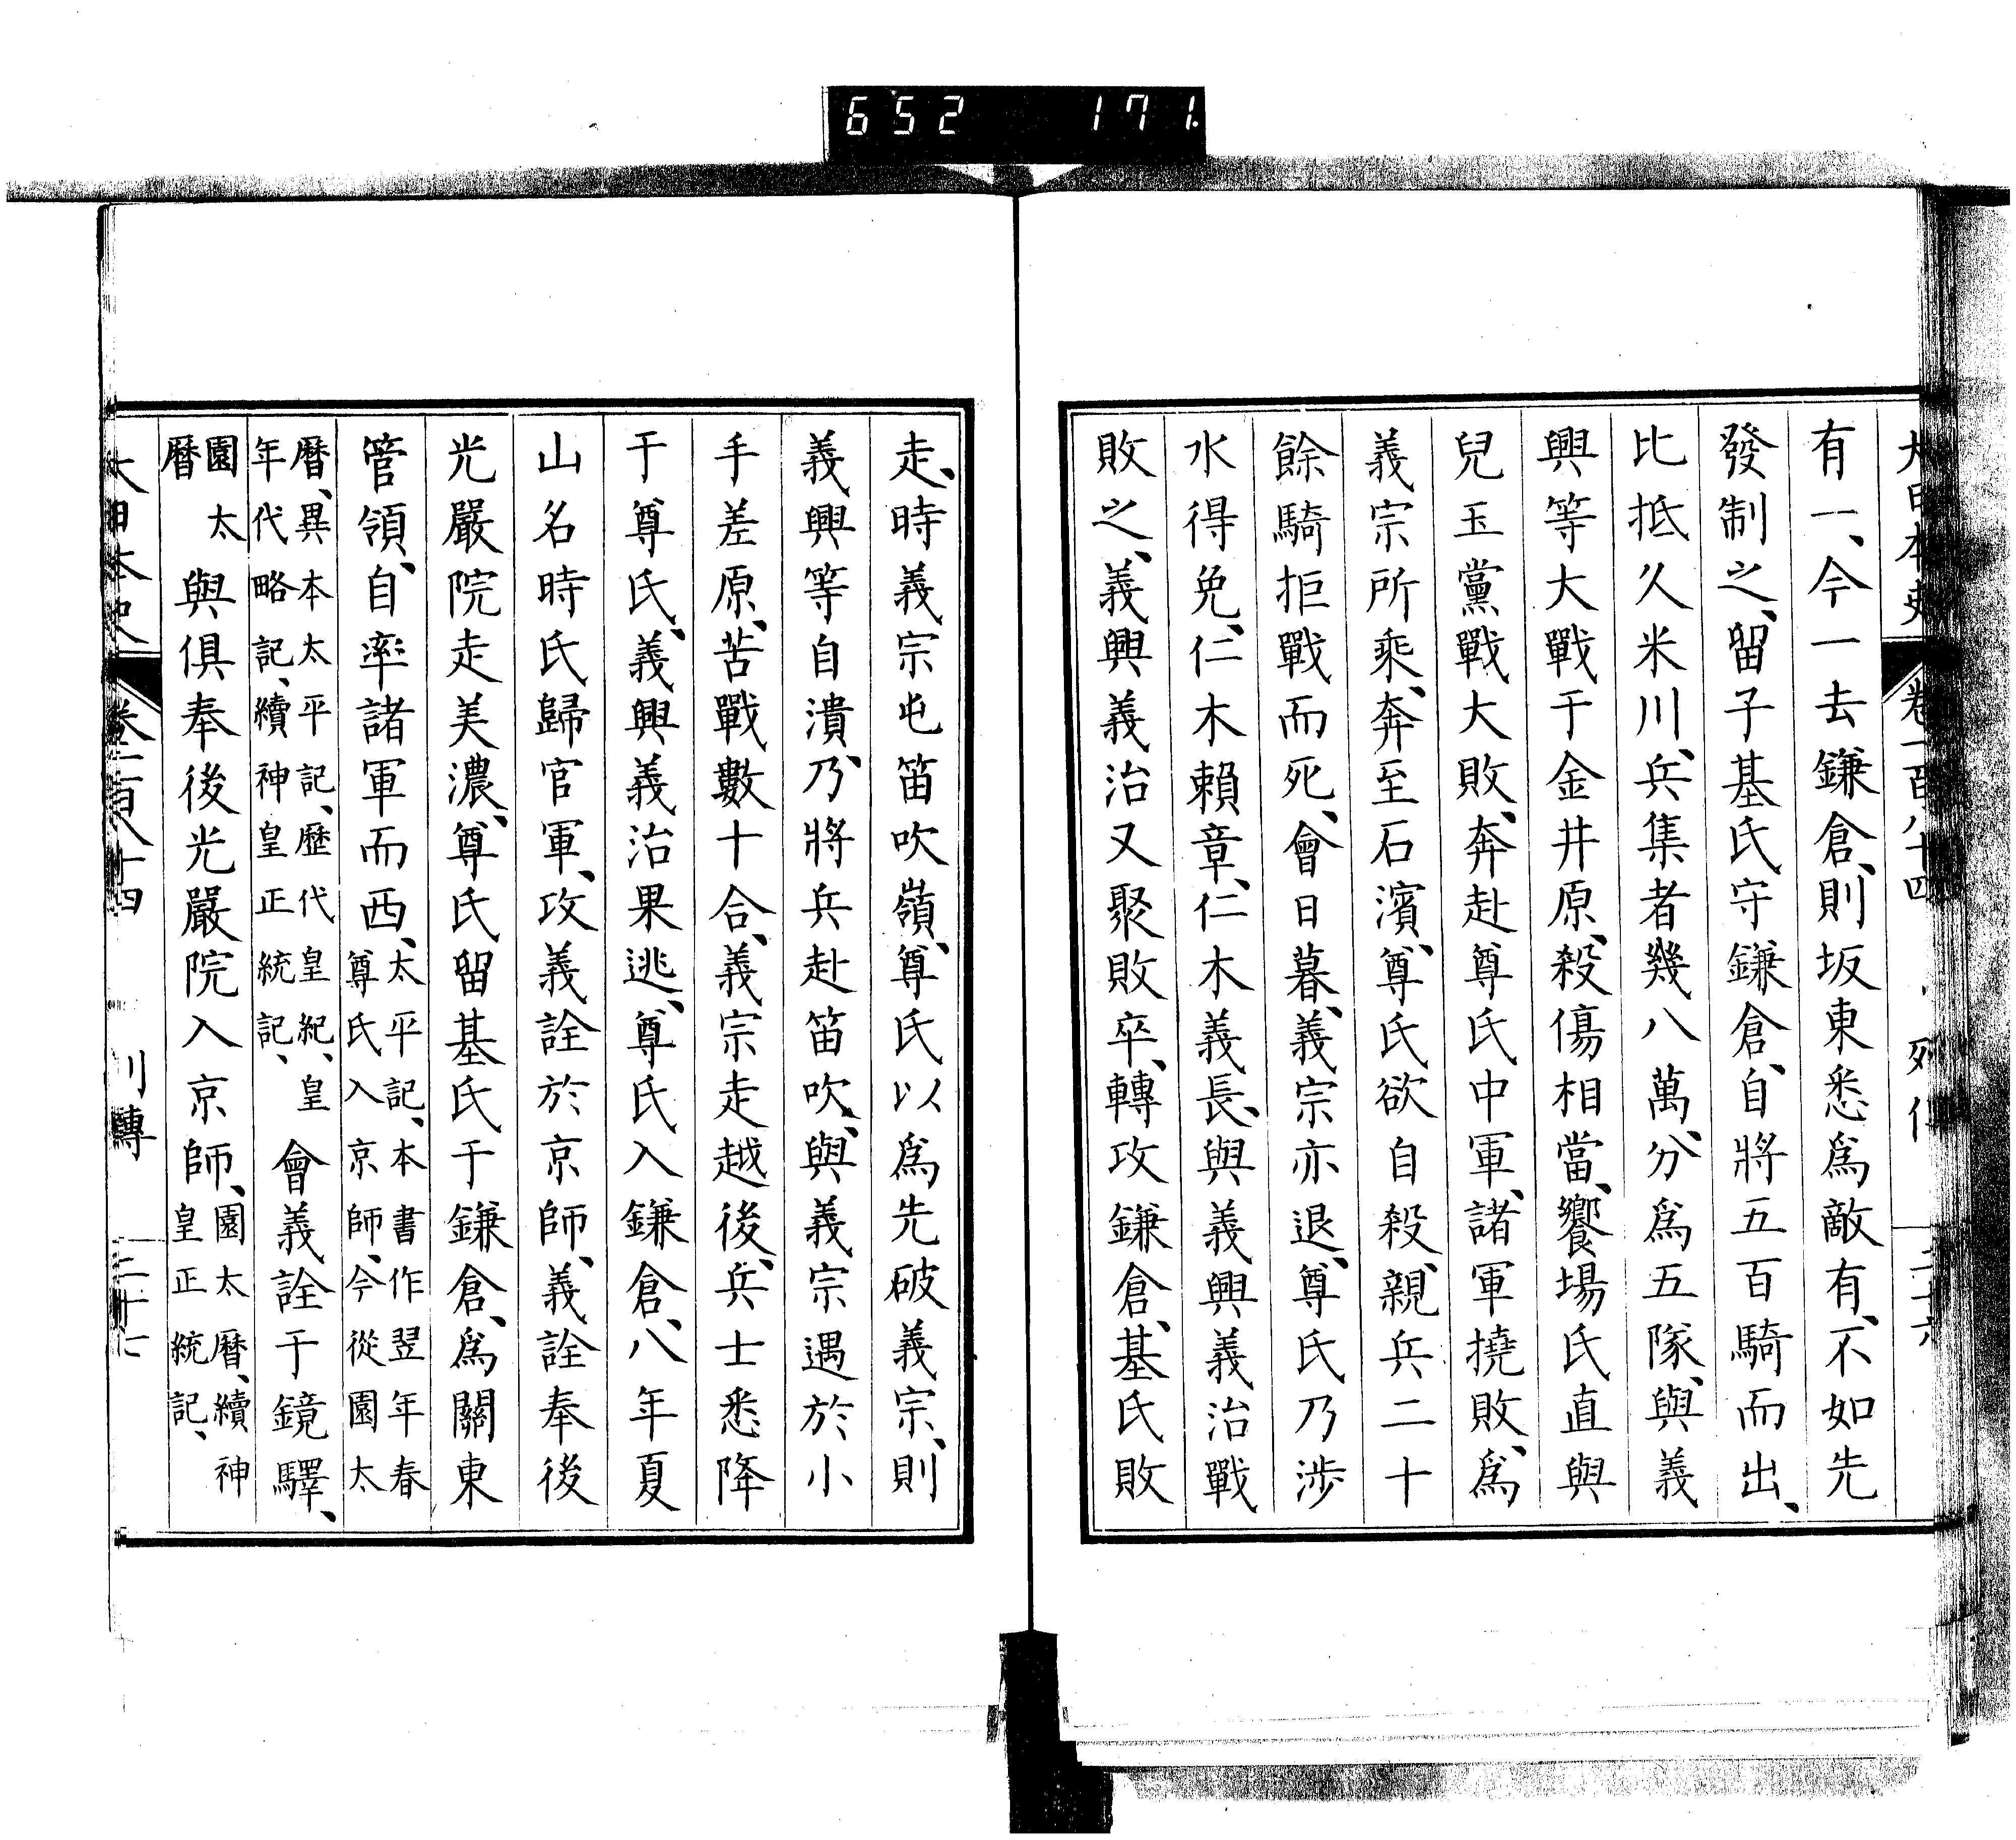 652 171.
大日本史 卷一百八十四 列傳 二十六
有一、今一去鎌倉、則坂東悉爲敵有、不如先
發制之、留子基氏守鎌倉、自將五百騎而出、
比抵久米川、兵集者幾八萬、分爲五隊、與義
興等大戰于金井原、殺傷相當、饗場氏直與
兒玉黨戰大敗、奔赴尊氏中軍、諸軍撓敗、爲
義宗所乘、奔至石濱、尊氏欲自殺、親兵二十
餘騎拒戰而死、會日暮、義宗亦退、尊氏乃涉
水得免、仁木賴章、仁木義長、與義興義治戰
敗之、義興義治又聚敗卒、轉攻鎌倉、基氏敗
走、時義宗屯笛吹嶺、尊氏以爲先破義宗、則
義興等自潰、乃將兵赴笛吹、與義宗遇於小
手差原、苦戰數十合、義宗走越後、兵士悉降
于尊氏、義興義治果逃、尊氏入鎌倉、八年夏
山名時氏歸官軍、攻義詮於京師、義詮奉後
光嚴院走美濃、尊氏留基氏于鎌倉、爲關東
管領、自率諸軍而西、太平記、本書作翌年春
尊氏入京師、今從園太
曆、異本太平記、歷代皇紀、皇
年代略記、續神皇正統記、會義詮于鏡驛、
園太
曆與俱奉後光嚴院入京師、園太曆、續神
皇正統記、
大日本史 卷一百八十四 列傳 二十七